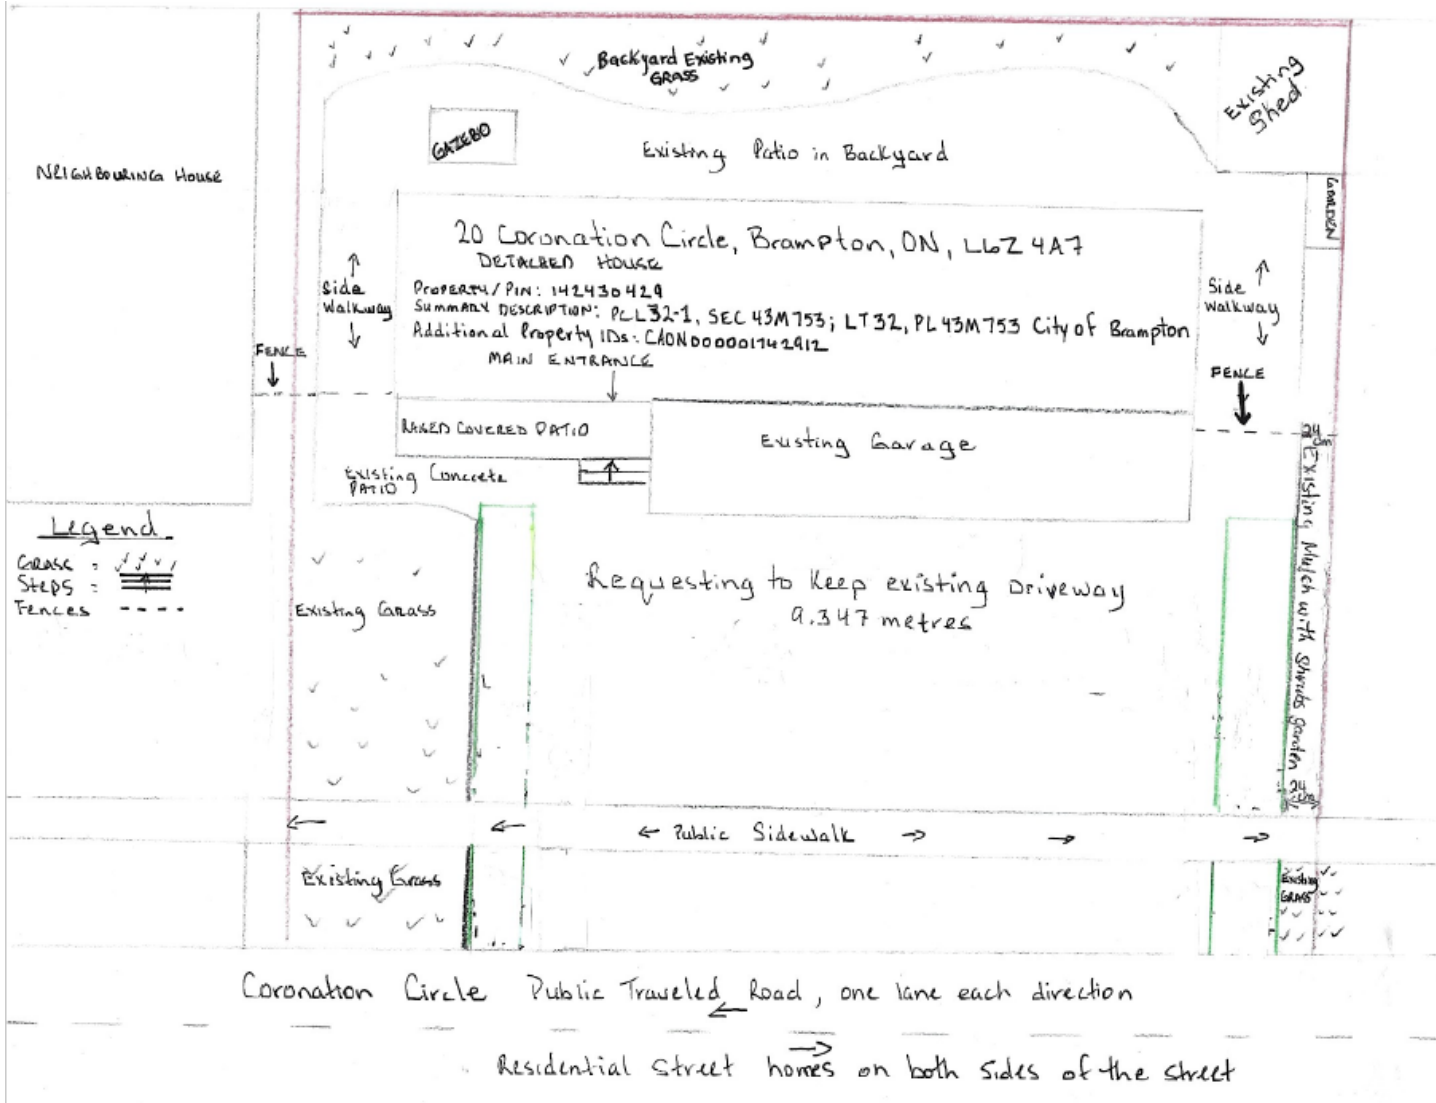 Backyard Existing
GRASS
Existing
Shed
GAZEBO
Existing Patio in Backyard
NEIGHBOURING HOUSE
GARDEN
20 Coronation Circle, Brampton, ON, L6Z 4A7
DETACHED HOUSE
Property/PIN: 142430429
Summary DESCRIPTION: PCL32-1, SEC 43M753; LT32, PL43M753 City of Brampton
Additional Property IDs: CAON000001742912
MAIN ENTRANCE
Side
Walkway
Side
Walkway
FENCE
FENCE
RAISED COVERED PATIO
Existing Garage
24
cm
Existing Concrete
PATIO
Existing Mulch with Shrubs garden
24
cm
Legend
GRASS =
Steps =
Fences
Existing Grass
Requesting to Keep existing Driveway
9.347 metres
Public Sidewalk
Existing Grass
Existing
GRASS
Coronation Circle Public Traveled Road, one lane each direction
Residential Street homes on both sides of the street